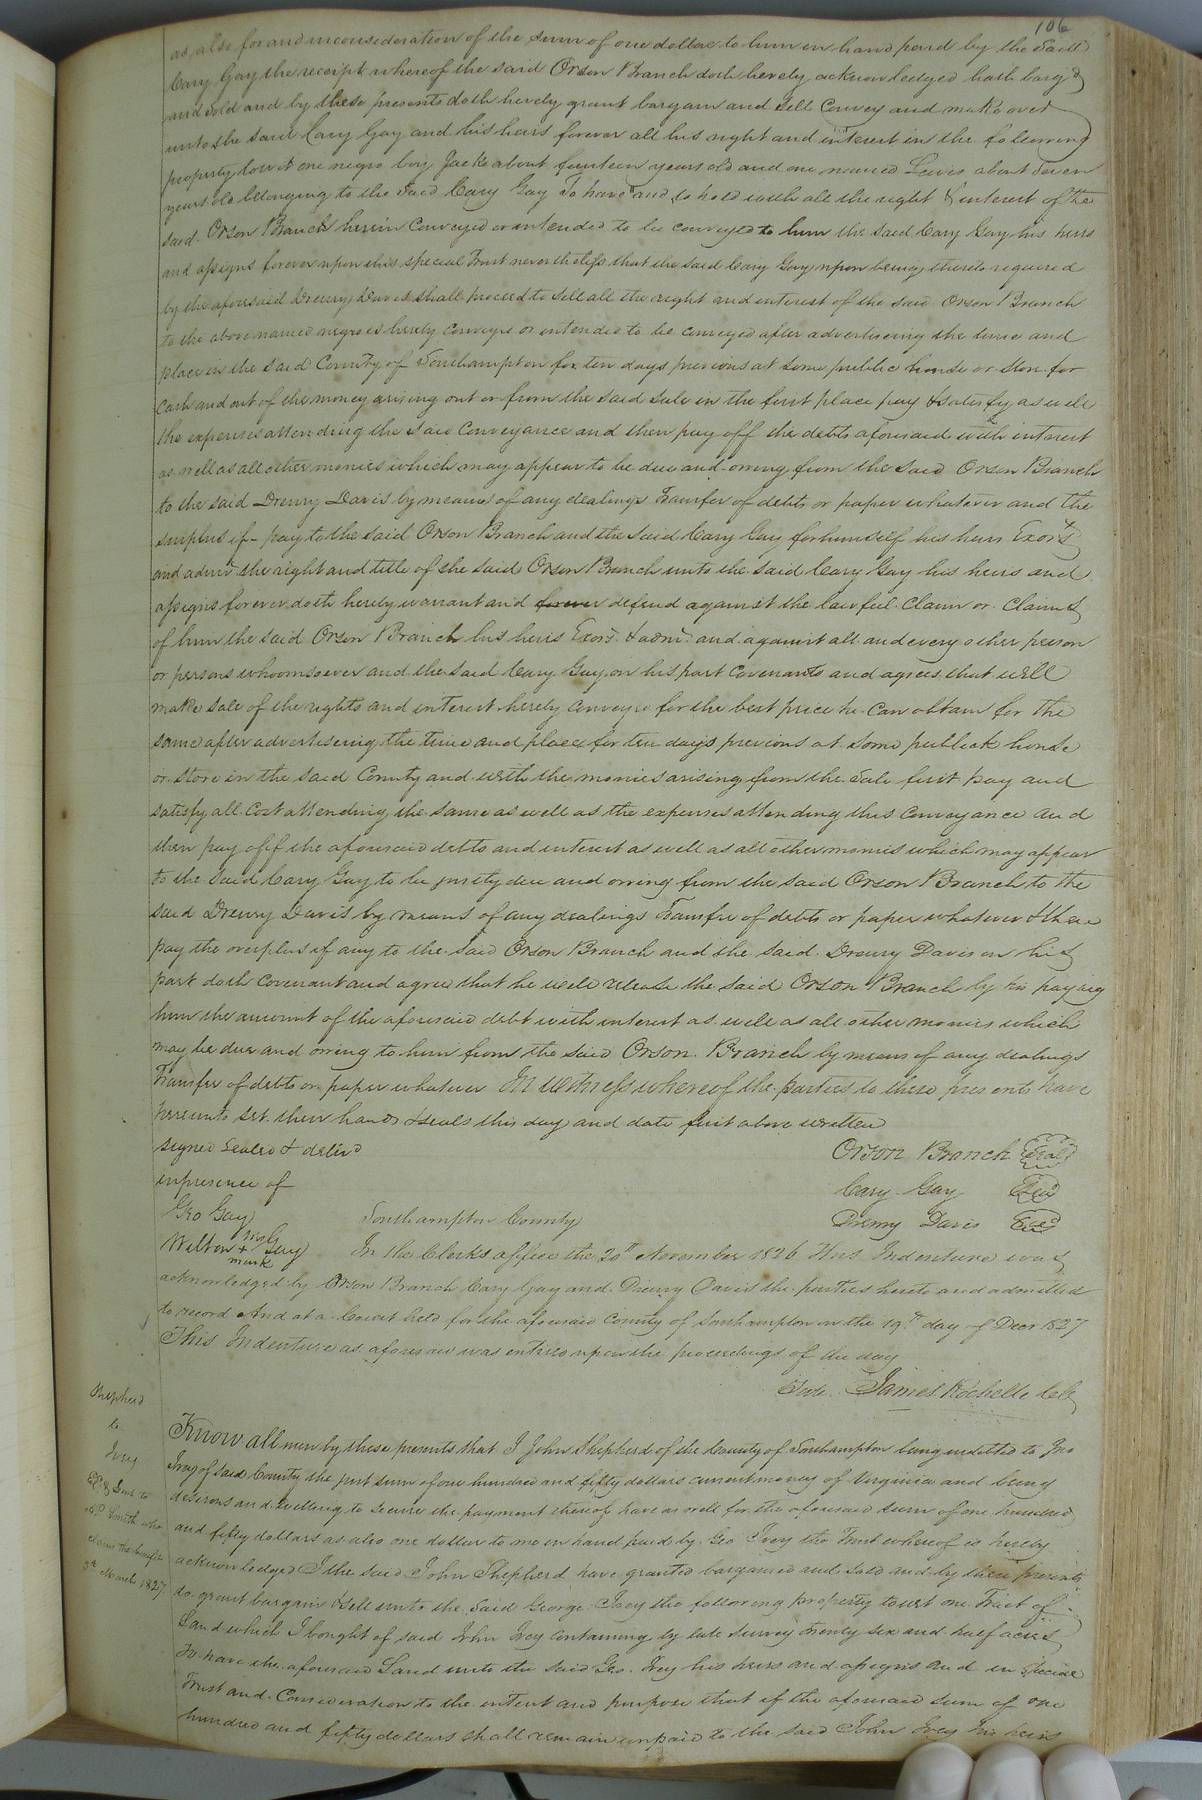 106
as also for and in consideration of the sum of one dollar to him in hand paid by the said
Cary Gay the receipt whereof the said Orson Branch doth hereby acknowledged hath barg d
and sold and by these presents doth hereby grant bargain and sell Convey and make over
unto the said Cary Gay and his heirs forever all his right and interest in the following
property towit one negro boy Jack about fourteen years old and one named Lewis about Seven
years old belonging to the said Cary Gay To have and to hold with all the right & interest of the
said Orson Branch herein Conveyed or intended to be conveyed to him the said Cary Gay his heirs
and assigns forever upon this special Trust nevertheless that the said Cary Gay upon being thereto required
by the aforesaid Drewry Davis shall proceed to sell all the right and interest of the said Orson Branch
to the above named negroes hereby conveyed or intended to be conveyed after advertiseing the time and
place in the said County of Southampton for ten days previous at some public house or store for
Cash and out of the money arising out or from the said sale in the first place pay & satisfy as well
the expenses attending the said Conveyance and then pay off the debts aforesaid with interest
as well as all other monies which may appear to be due and owing from the said Orson Branch
to the said Drewry Davis by means of any dealings Transfer of debts or paper whatever and the
surplus if pay to the said Orson Branch and the said Cary Gay for himself his heirs Exors
and admrs the right and title of the said Orson Branch unto the said Cary Gay his heirs and
assigns forever doth hereby warrant and forever defend against the lawful Claim or Claims
of him the said Orson Branch his heirs Exors & admrs and against all and every other person
or persons whoomsoever and the said Cary Gay on his part Covenants and agrees that will
make sale of the rights and interest hereby conveyed for the best price he can obtain for the
same after advertiseing the time and place for ten days previous at some publick house
or store in the said County and with the monies arising from the sale first pay and
satisfy all Cost attending the same as well as the expenses attending this Conveyance and
then pay off the aforesaid debts and interest as well as all other monies which may appear
to the said Cary Gay to be justly due and owing from the said Orson Branch to the
said Drewry Davis by means of any dealings Transfer of debts or paper whatever & then
pay the overplus if any to the said Orson Branch and the said Drewry Davis on his
part doth Covenant and agree that he will release the said Orson Branch by his paying
him the amount of the aforesaid debt with interest as well as all other monies which
may be due and owing to him from the said Orson Branch by means of any dealings
Transfer of debts or paper whatever In witness whereof the parties to these presents have
hereunto set their hands & seals this day and date first above written
signed Sealed & delivd
in presence of
Orson Branch Seal
Cary Gay Seal
Drewry Davis Seal
Geo Gay
Wilton his + mark Gay
Southampton County
In the Clerks office the 20th November 1826 This Indenture was
acknowledged by Orson Branch Cary Gay and Drewry Davis the parties hereto and admitted
to record And at a Court held for the aforesaid County of Southampton on the 19th day of Decr 1827
This Indenture as aforesaid was entered upon the proceedings of the day
Teste James Rochelle Clk
Shepherd
to
Ivey
Ex & Sent to
Smith who
claims the benefit
5th March 1827
Know all men by these presents that I John Shepherd of the County of Southampton being indebted to Jno
Ivey of said County the just sum of one hundred and fifty dollars current money of Virginia and being
desirous and willing to secure the payment thereof have as well for the aforesaid sum of one hundred
and fifty dollars as also one dollar to me in hand paid by Geo Ivey the Trust whereof is hereby
acknowledged I the said John Shepherd have granted bargained and sold and by these presents
do grant bargain & sell unto the said George Ivey the following property towit one Tract of
Land which I bought of said John Ivey Containing by late Survey twenty six and half acres
To have the aforesaid Land unto the said Geo. Ivey his heirs and assigns and in Special
Trust and Consideration to the intent and purpose that if the aforesaid sum of one
hundred and fifty dollars shall remain unpaid to the said John Ivey his heirs